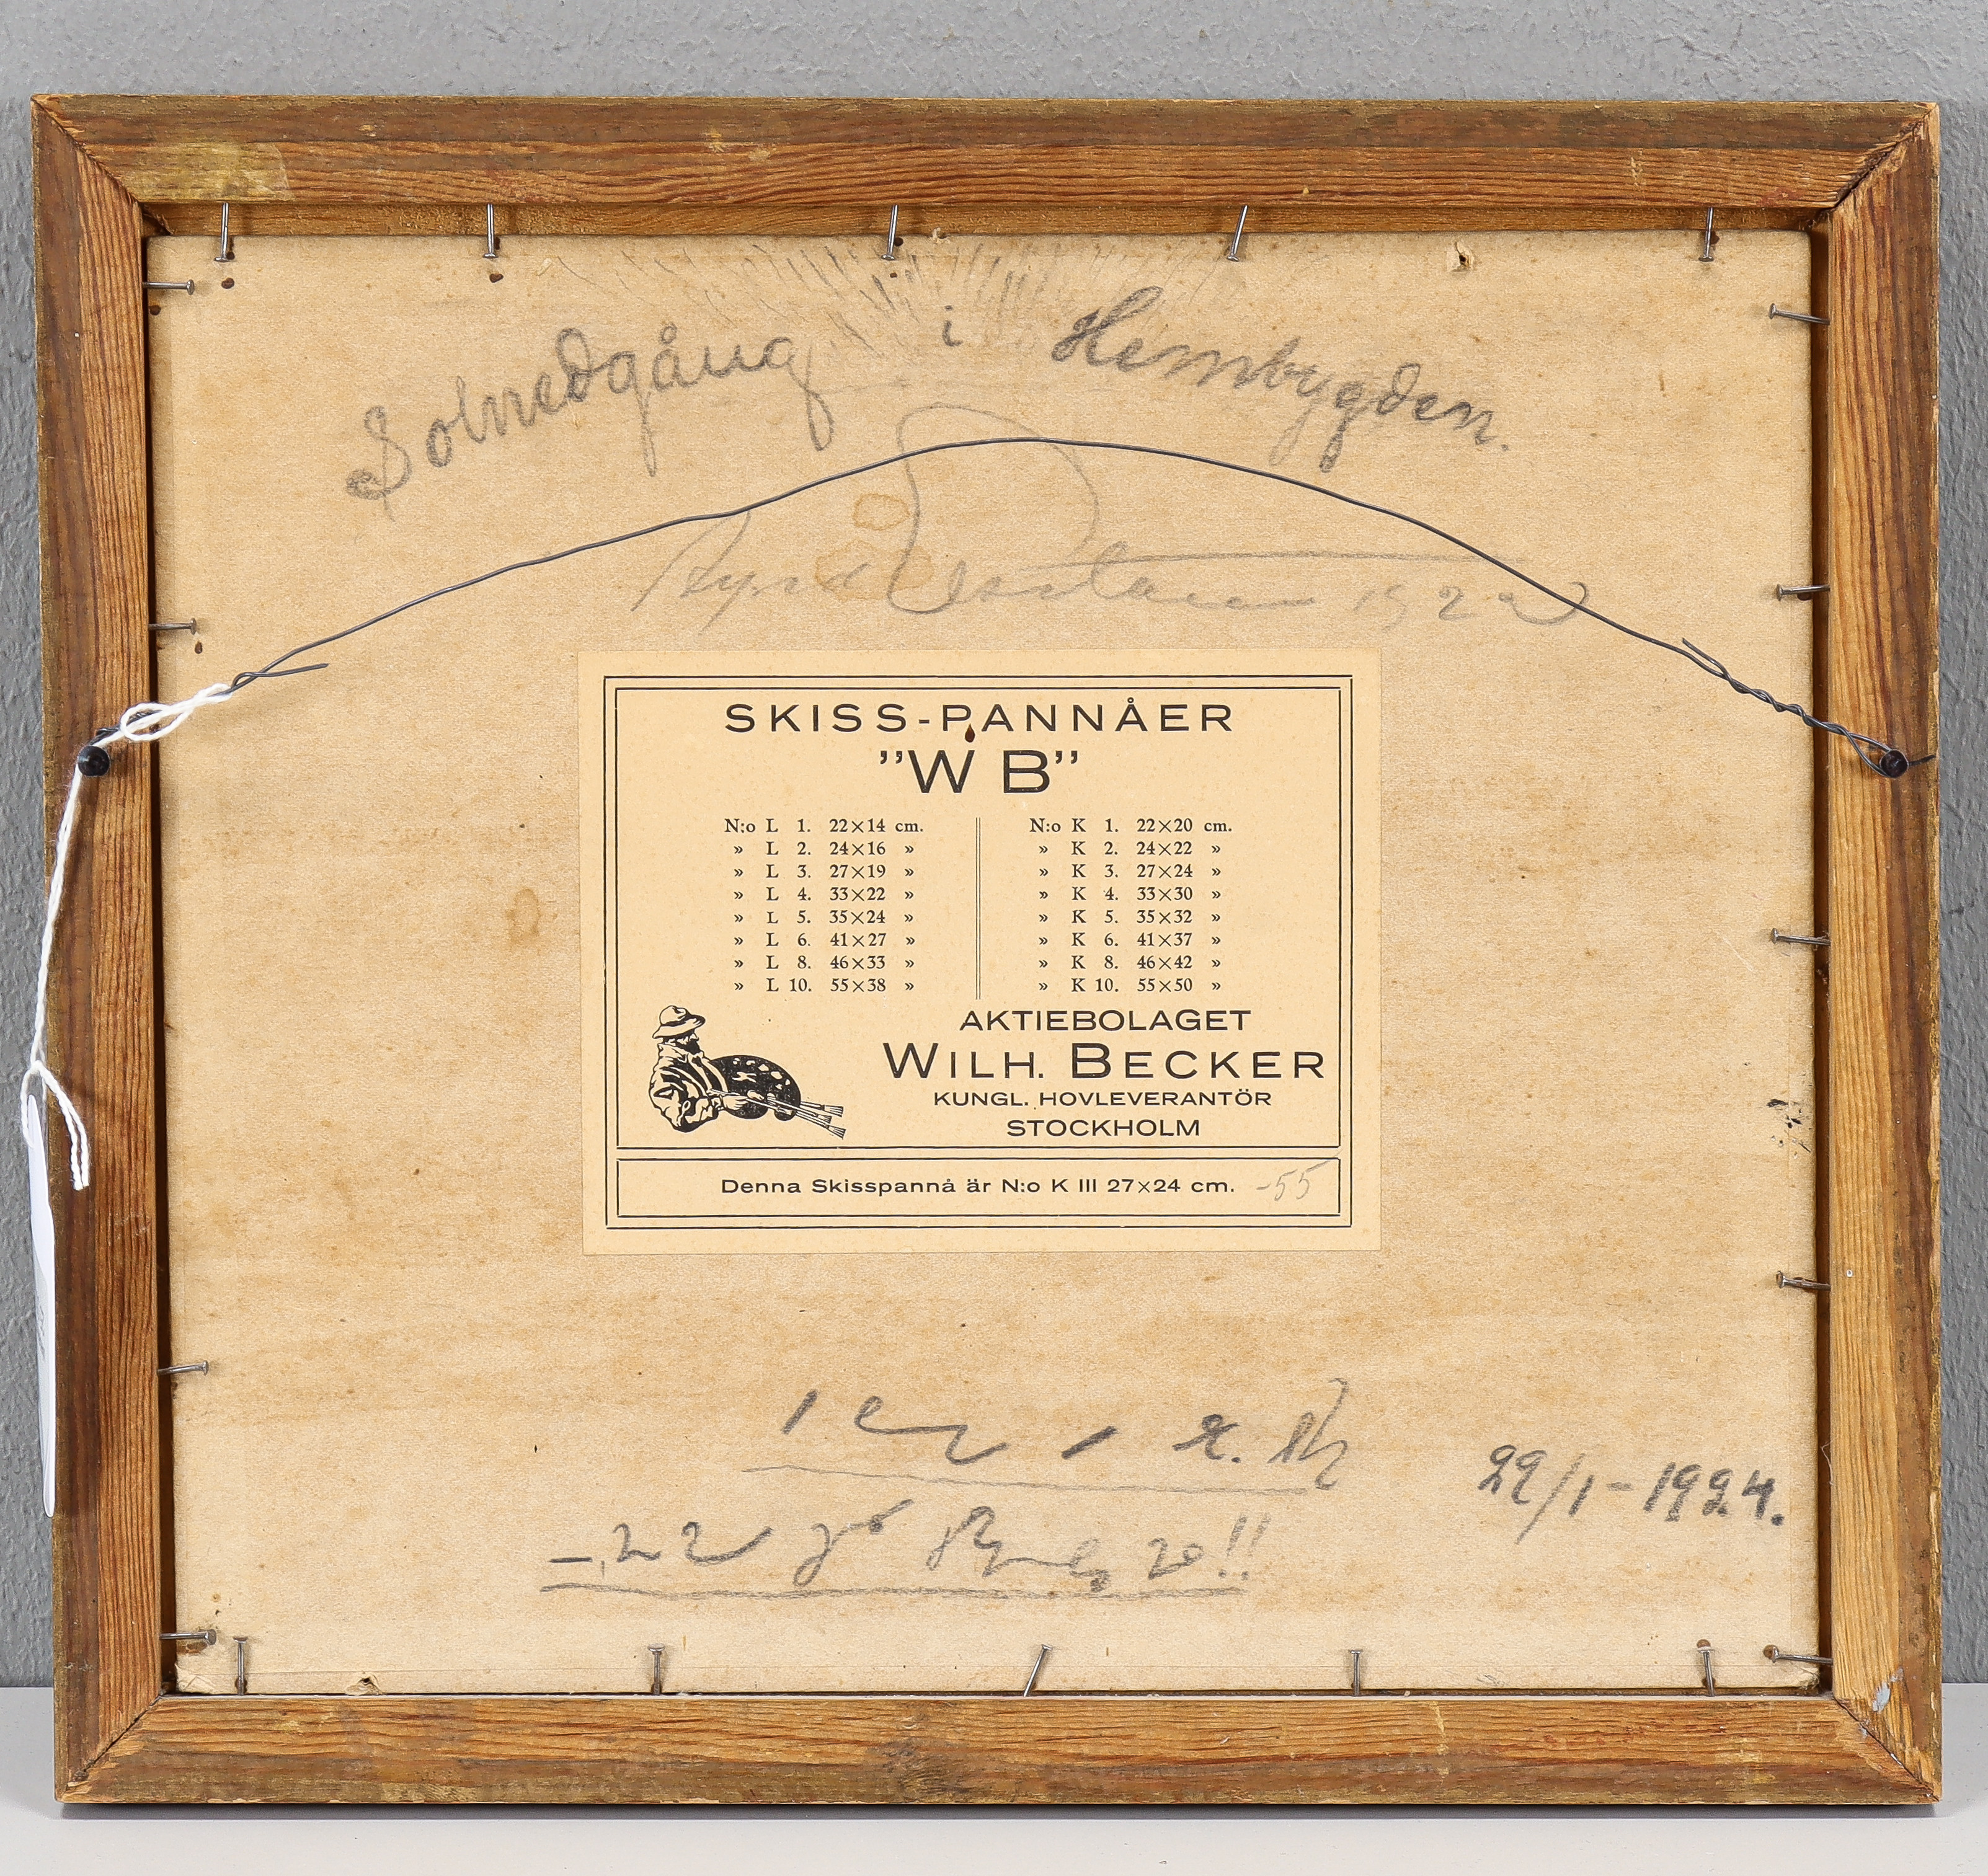 Solnedgång i Hembygden.
1922
SKISS-PANNÅER
"W B"
N:o L 1. 22×14 cm.
» L 2. 24×16 »
» L 3. 27×19 »
» L 4. 33×22 »
» L 5. 35×24 »
» L 6. 41×27 »
» L 8. 46×33 »
» L 10. 55×38 »
N:o K 1. 22×20 cm.
» K 2. 24×22 »
» K 3. 27×24 »
» K 4. 33×30 »
» K 5. 35×32 »
» K 6. 41×37 »
» K 8. 46×42 »
» K 10. 55×50 »
AKTIEBOLAGET
WILH. BECKER
KUNGL. HOVLEVERANTÖR
STOCKHOLM
Denna Skisspannå är N:o K III 27×24 cm. -55
22/1-1924.